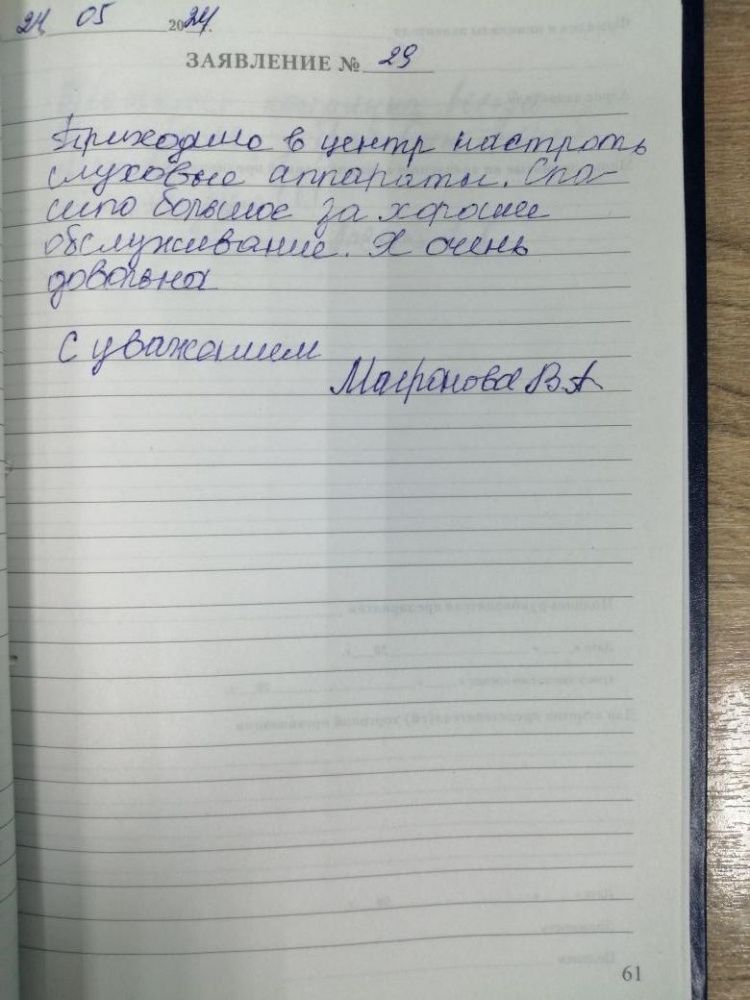 24 05 2024.
ЗАЯВЛЕНИЕ № 29
Приходила в центр настроть
слуховые аппараты. Спа-
сибо большое за хорошее
обслуживание. Я очень
довольна
С уважанием
В А
61